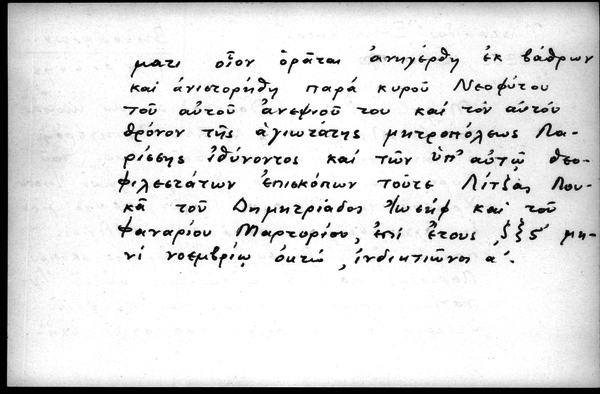 ματι οἷον ὁρᾶται ἀνηγέρθη ἐκ βάθρων
καὶ ἀνιστορήθη παρὰ κυροῦ Νεοφύτου
τοῦ αὐτοῦ ἀνεψιοῦ του καὶ τὸν αὐτὸν
θρόνον τῆς ἁγιωτάτης μητροπόλεως Λα-
ρίσσης ἰθύνοντος καὶ τῶν ὑπ' αὐτῷ θεο-
φιλεστάτων ἐπισκόπων τοῦτε Λίτζας Λου-
κᾶ τοῦ Δημητριάδος Ἰωσὴφ καὶ τοῦ
Φαναρίου Μαρτυρίου, ἐπὶ ἔτους ͵ζξς' μη-
νὶ νοεμβρίῳ ὀκτώ, ἰνδικτιῶνος α'.